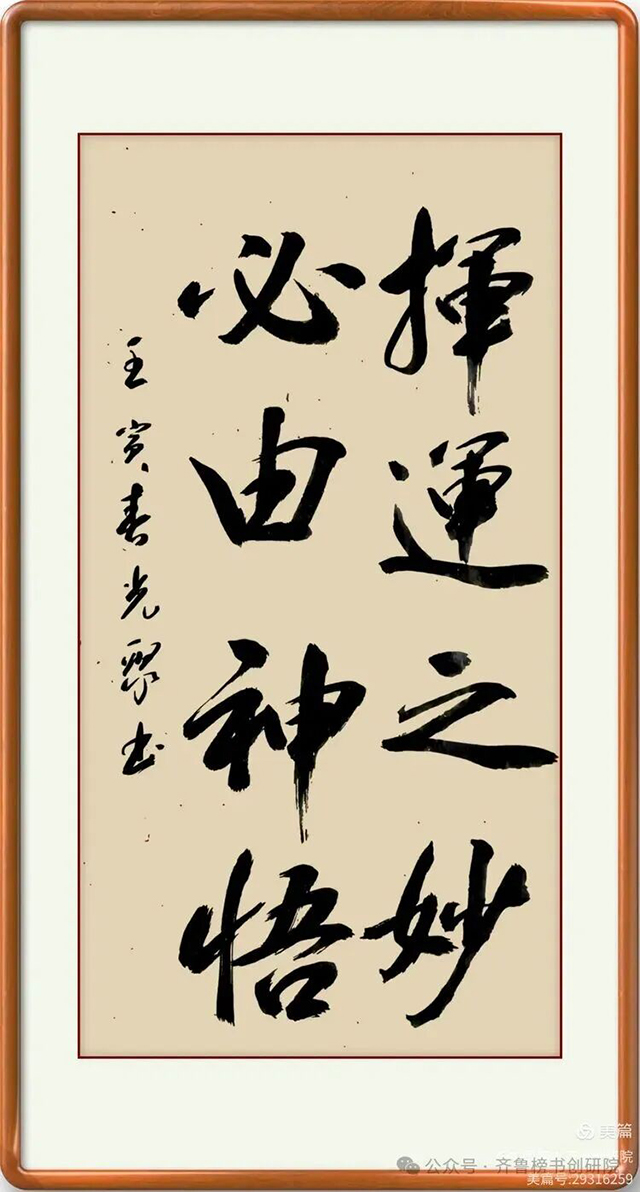 揮運之妙
必由神悟
壬寅春光聚书
美篇
公众号·齐鲁榜书创研院
院
美篇号:29316259